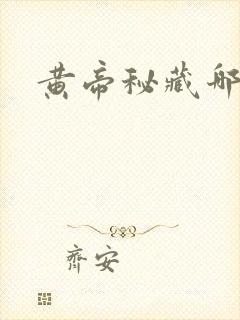 黄帝秘藏
齊安